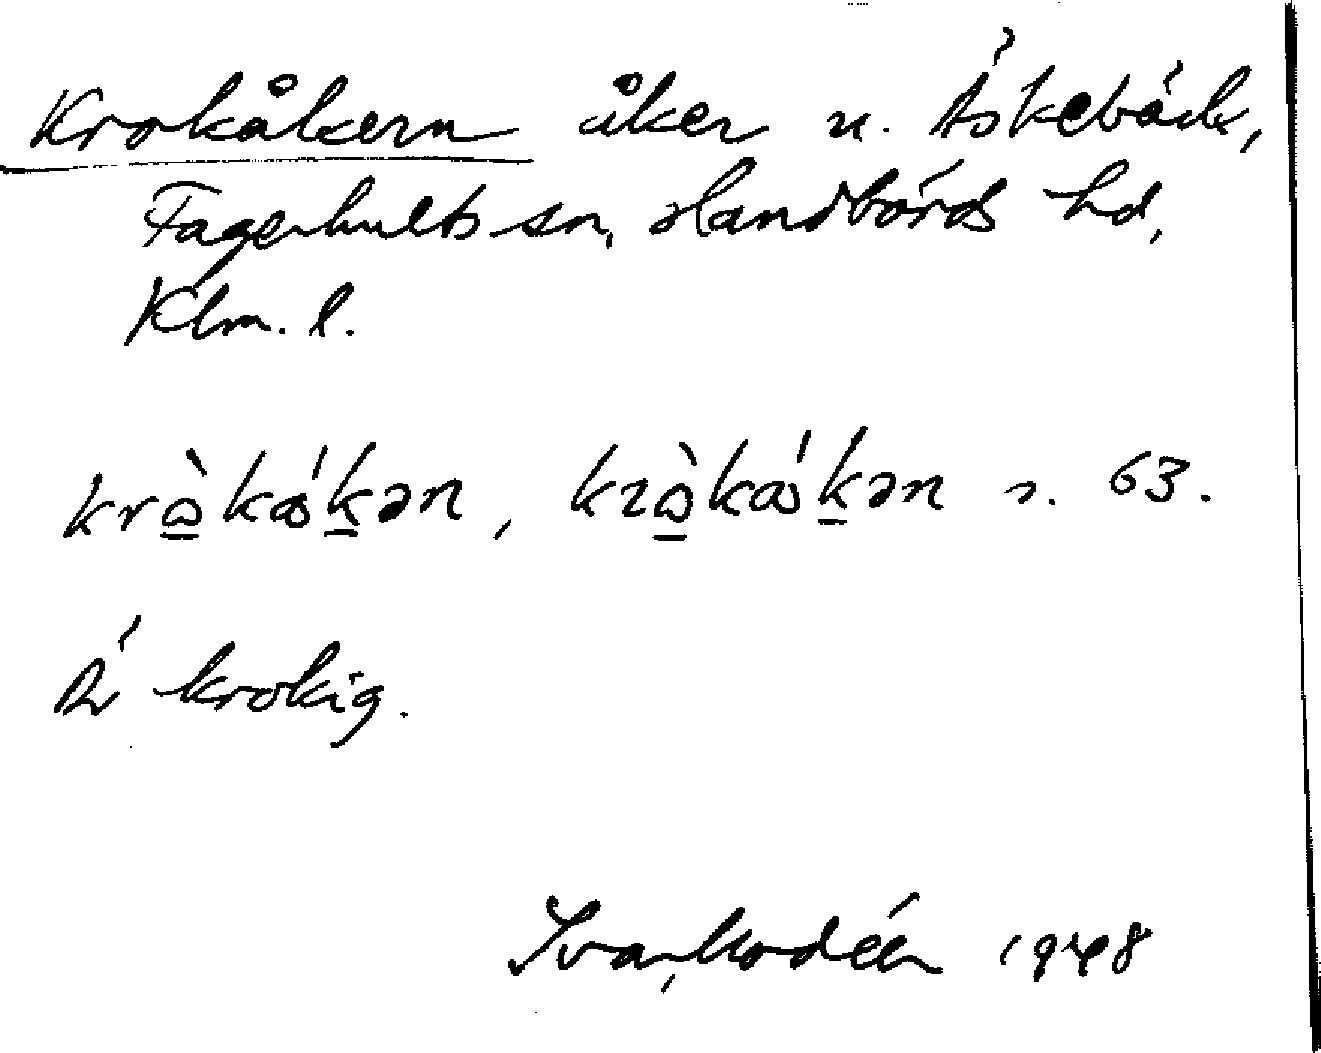 Krokåkern åker u. Äskebäck,
Fagerhults sn, Handbörds hd,
Klm. l.
krὼkάkən, kɿὼkάkən s. 63.
Är krokig.
Ivar Modéer 1948